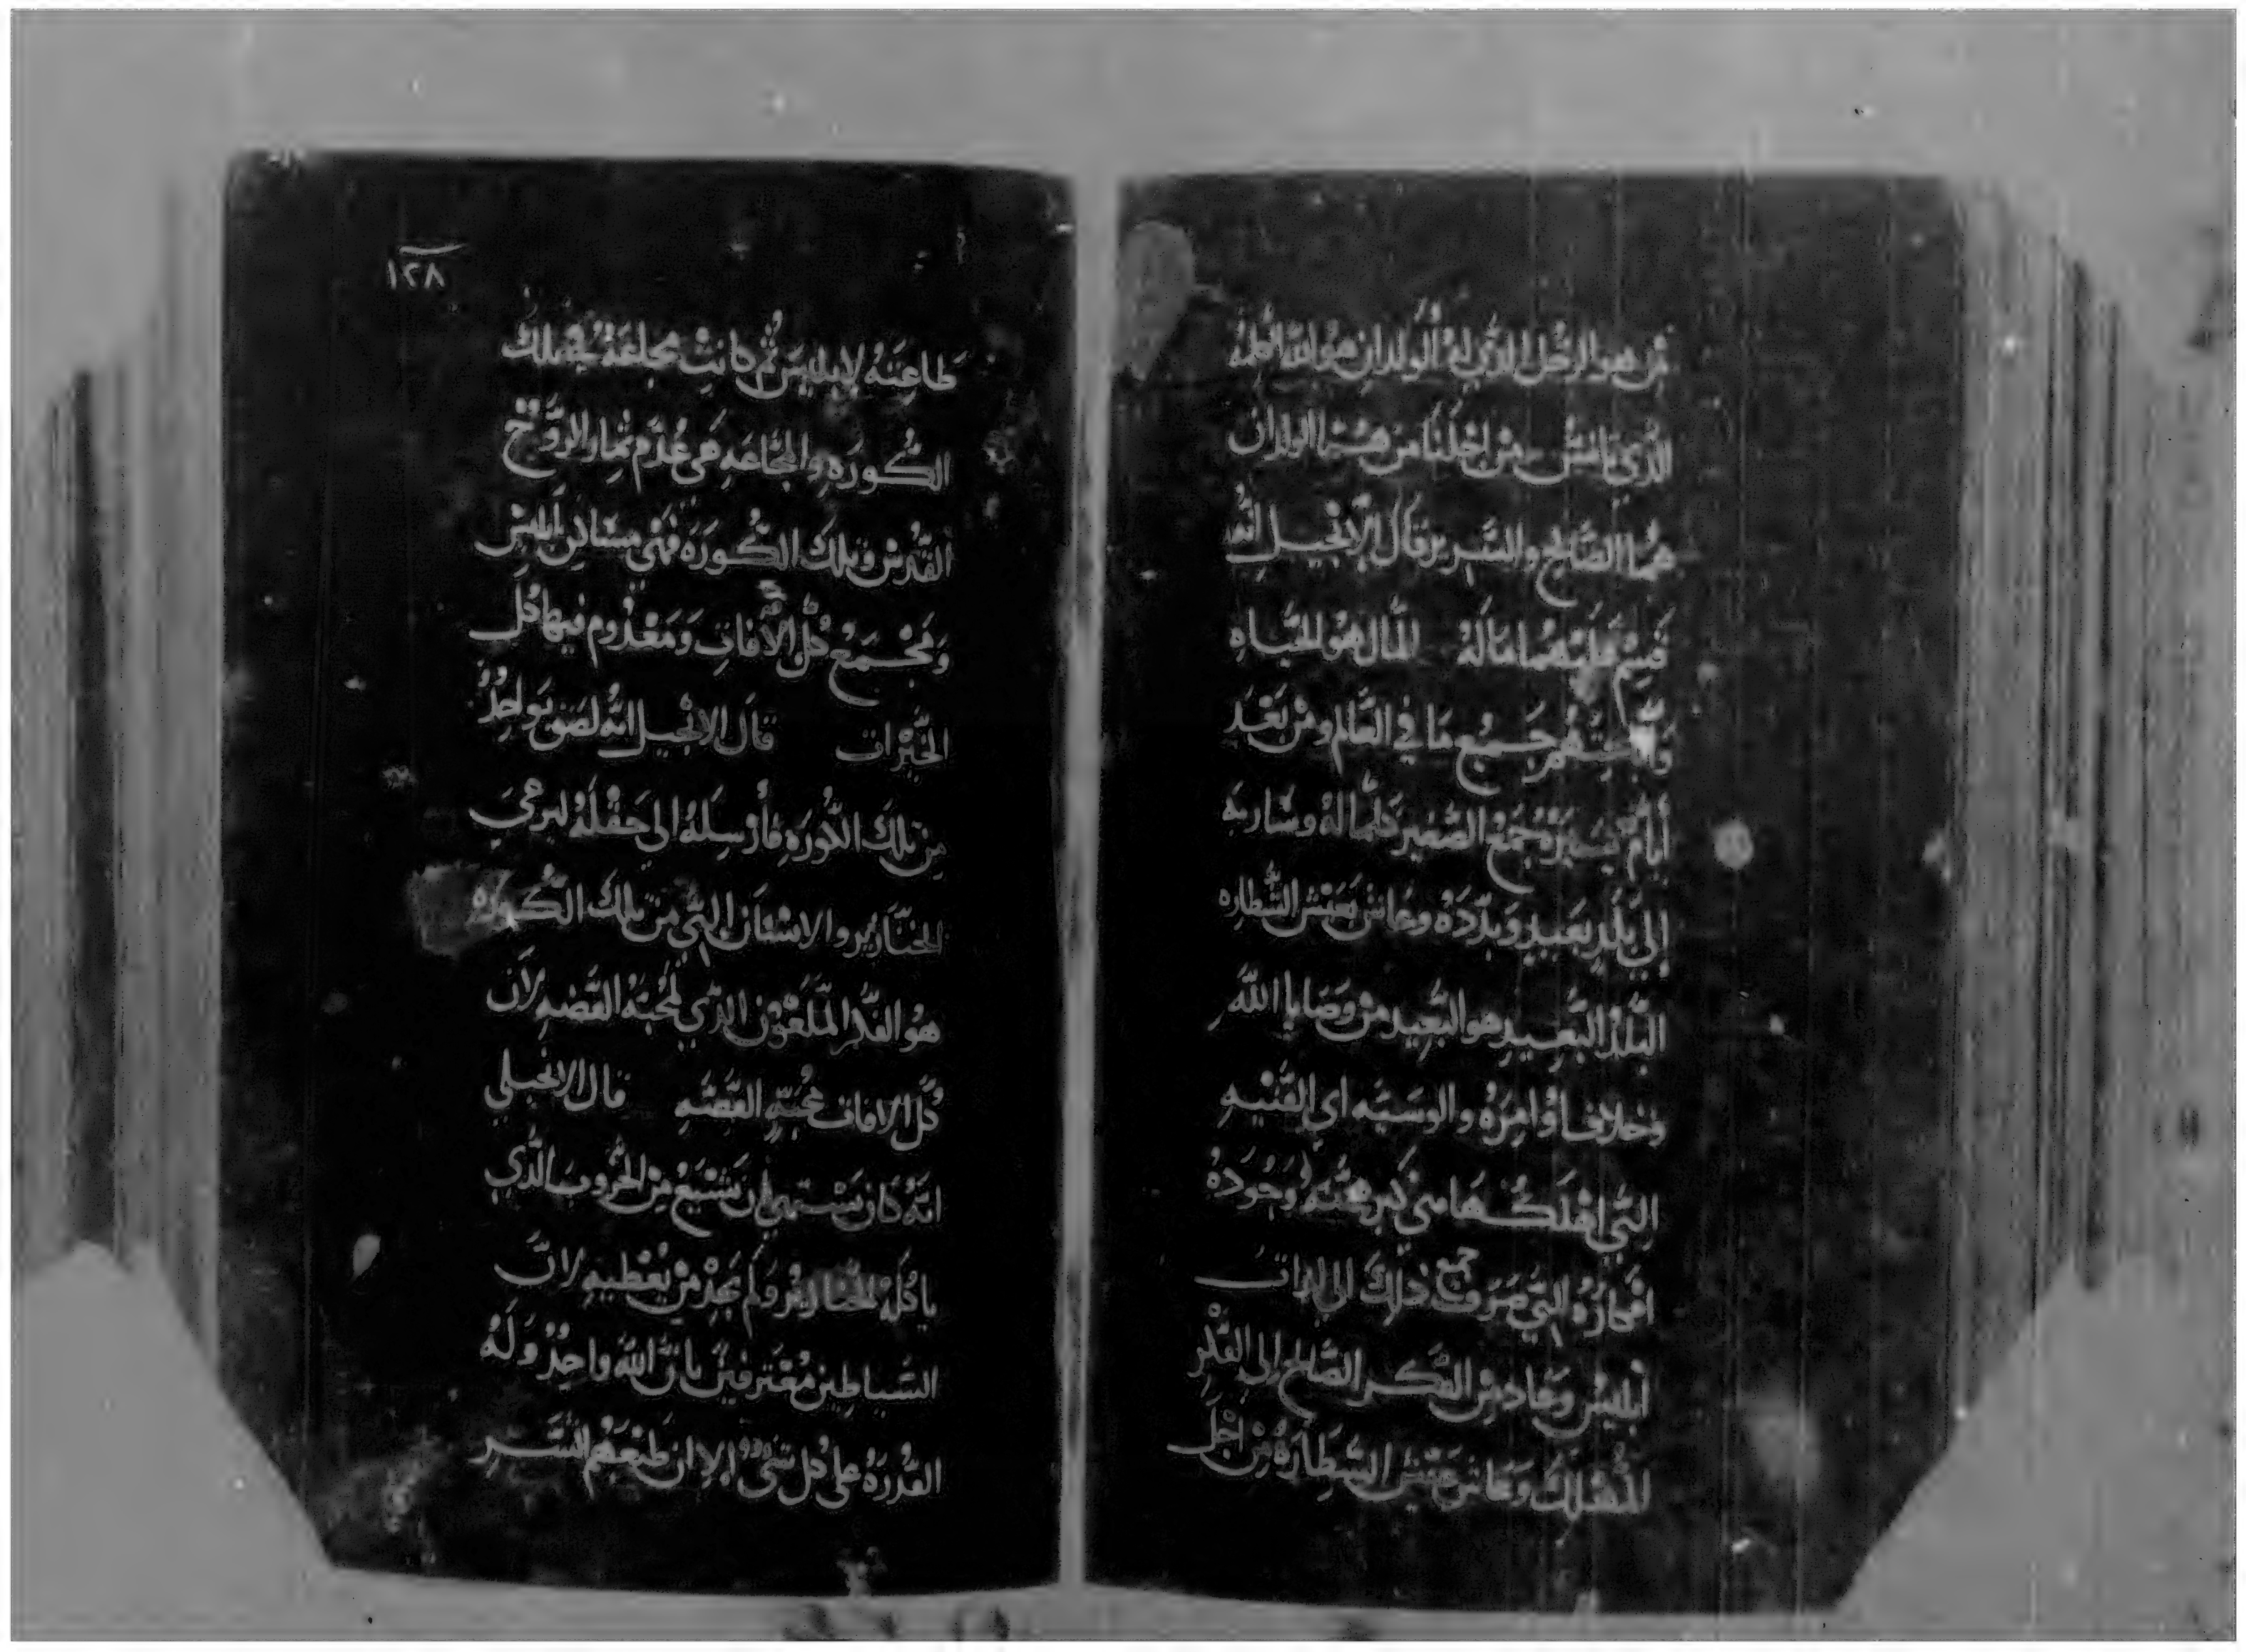 من هو الرجل الذي له الولدان هو الله الكلمه
الذي تانس من اجلنا من هما الولدان
هما الصالح والشرير قال الانجيل انه
قسم عليهما ماله المال هو الحياه
جميع ما في العالم ومن بعد
أيام يسيره جمع الصغير كلما له وسار به
إلي بلد بعيد وبدده وعاش بعيش الشطاره
البلد البعيد هو البعيد من وصايا الله
وخلاف اوامره والوسيه اي القنيه
التي اهلكها هي كبر همته وجوده
افكاره التي صرف جميع ذلك الي لذات
أبليس وعاد من الفكر الصالح إلي الفكر
المهلك وعاش بعيش الشطاره من اجل
١٢٨
طاعته لابليس ثم كانت مجاعة في تلك
الكوره والمجاعه هي عدم ثمار الروح
القدس وتلك الكوره فهي مساكن ابليس
ومجمع كل الآفات ومعدوم فيها كل
الخيرات قال الانجيل انه لصق بواحد
من تلك الكوره فأرسله الي حقله ليرعي
الخنازير والانسان الذي من تلك الكوره
هو الفكر الملعون الذي لمحبة الفضه لان
كل الافات محبة الفضه قال الانجيلي
انه كان يشتهي ان يشبع من الخروب الذي
ياكله الخنازير ولم يجد من يعطيه لان
الشياطين معترفين بان الله واحد وله
القدره علي كل شي الا ان طبعهم الشر